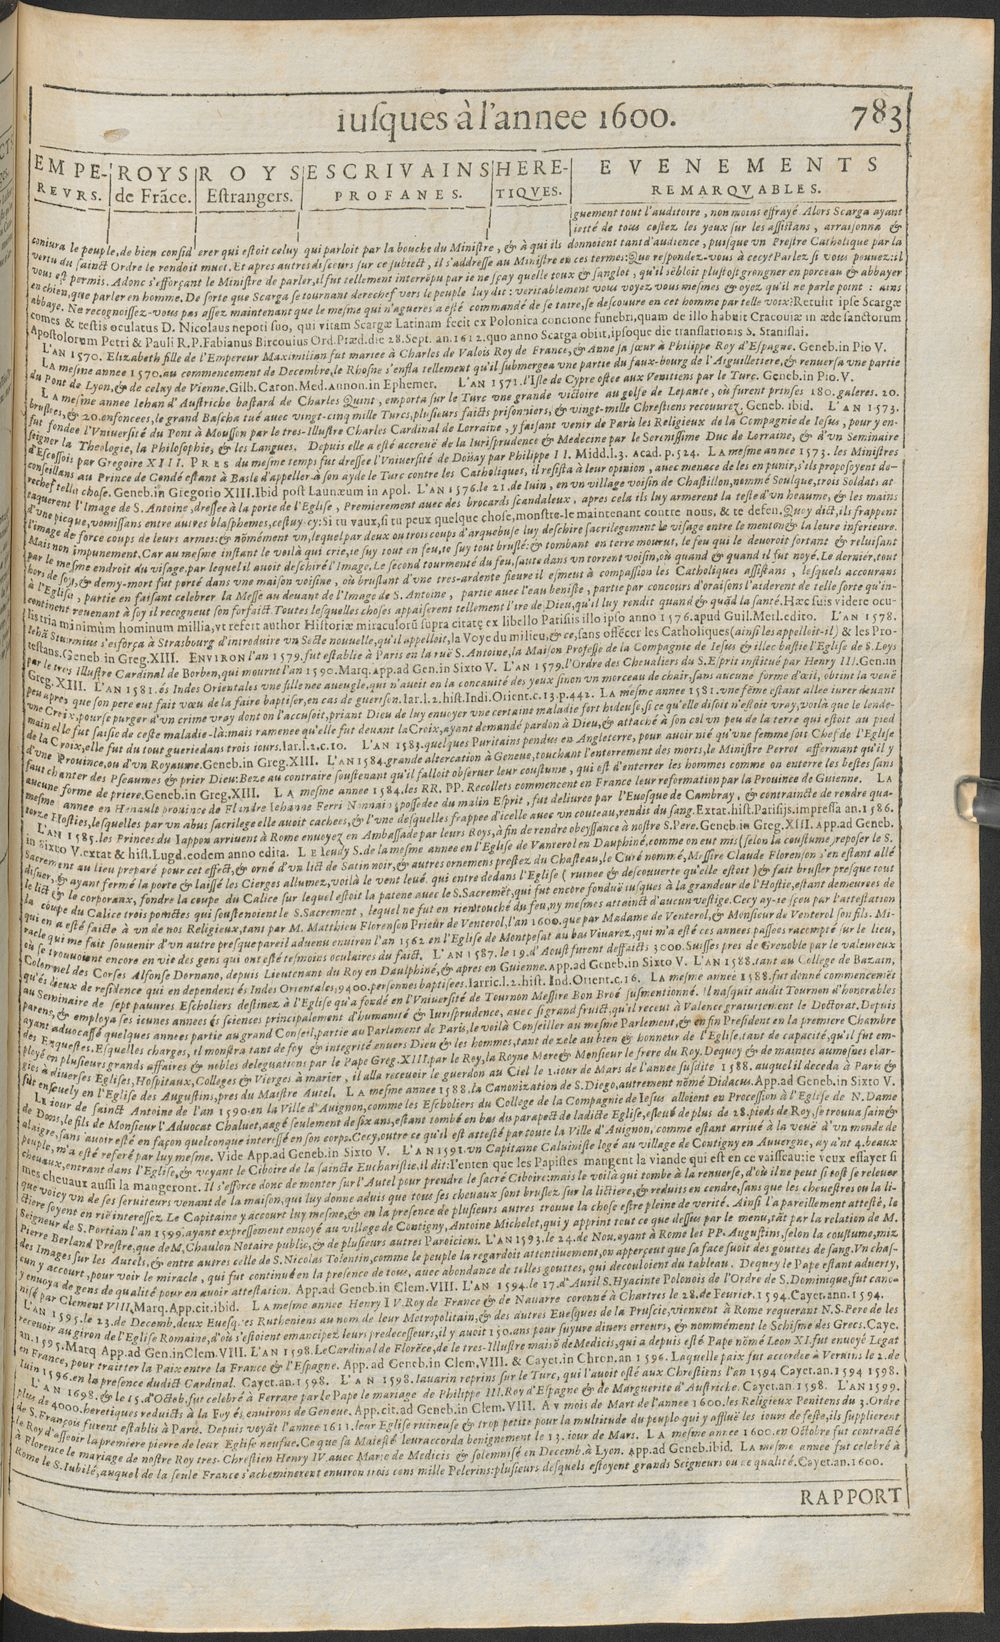 iusques à l'annee 1600. 783
EMPE-REVRS. ROYS de Frãce. ROYS Estrangers. ESCRIVAINS PROFANES. HERE-TIQVES. EVENEMENTS REMARQVABLES.
guement tout l'auditoire, non moins effrayé Alors Scarga ayant
iettè de tous costez les yeux sur les assistans, arraisonna &
coniura le peuple, de bien considerer qui estoit celuy qui parloit par la bouche du Ministre, & à qui ils donnoient tant d'audience, puisque vn Prestre Catholique par la
vertu du sainct Ordre le rendoit muet. Et apres autres discours sur ce subiect, il s'addresse au Ministre en ces termes: Que respondez-vous à cecy? Parlez si vous pouvez: il
vous est permis. Adonc s'efforçant le Ministre de parler, il fut tellement interrõpu par ie ne sçay quelle toux & sanglot, qu'il sẽbloit plustost grongner en porceau & abbayer
en chien, que parler en homme. De sorte que Scarga se tournant derechef vers le peuple luy dit: veritablement vous voyez vous mesmes & oyez qu'il ne parle point: ains
abbaye. Ne recognoissez-vous pas assez maintenant que le mesme qui n'agueres a esté commandé de se taire, se descouvre en cet homme par telle voix? Retulit ipse Scargæ
comes & testis oculatus D. Nicolaus nepoti suo, qui vitam Scargæ Latinam fecit ex Polonica concione funebri, quam de illo habuit Cracouiæ in æde sanctorum
Apostolorum Petri & Pauli R.P. Fabianus Bircouius Ord. Præd. die 28. Sept. an. 1612. quo anno Scarga obiit, ipsoque die translationis S. Stanislai.
L'AN 1570. Elizabeth fille de l'Empereur Maximilian fut mariee à Charles de Valois Roy de France, & Anne sa sœur à Philippe Roy d'Espagne. Geneb. in Pio V.
LA mesme annee 1570. au commencement de Decembre, le Rhosne s'enfla tellement qu'il submergea vne partie du faux-bourg de l'Aiguillettiere, & renuersa vne partie
du Pont de Lyon, & de celuy de Vienne. Gilb. Caron. Med. Annon. in Ephemer. L'AN 1571. l'Isle de Cypre ostee aux Venitiens par le Turc. Geneb. in Pio. V.
LA mesme annee Iehan d'Austriche bastard de Charles Quint, emporta sur le Turc vne grande victoire au golfe de Lepante, où furent prinses 180. galeres. 20.
bruslees, & 20. enfoncees, le grand Bascha tué avec vingt-cinq mille Turcs, plusieurs faicts prisonniers, & vingt-mille Chrestiens recourez. Geneb. ibid. L'AN 1573.
fut fondee l'Vniuersité du Pont à Mousson par le tres-Illustre Charles Cardinal de Lorraine, y faisant venir de Paris les Religieux de la Compagnie de Iesus, pour y en-
seigner la Theologie, la Philosophie, & les Langues. Depuis elle a esté accreuë de la Iurisprudence & Medecine par le Serenissime Duc de Lorraine, & d'vn Seminaire
d'Escossois par Gregoire XIII. PRES du mesme temps fut dressee l'Vniuersité de Doüay par Philippe II. Midd. l.3. Acad. p. 524. LA mesme annee 1573. les Ministres
conseillans au Prince de Condé estant à Basle d'appeller à son ayde le Turc contre les Catholiques, il resista à leur opinion, avec menace de les en punir, s'ils proposoyent de-
rechef telle chose. Geneb. in Gregorio XIII. Ibid post Launæum in Apol. L'AN 1576. le 21. de Iuin, en vn village voisin de Chastillon, nommé Soulque, trois Soldats at
taquerent l'Image de S. Antoine, dressee à la porte de l'Eglise, Premierement avec des brocards scandaleux, apres cela ils luy armerent la teste d'vn heaume, & les mains
d'vne picque, vomissans entre autres blasphemes, cestuy-cy: Si tu vaux, si tu peux quelque chose, monstre-le maintenant contre nous, & te defen. Quoy dict, ils frappent
l'image de force coups de leurs armes: & nõmément vn, lequel par deux ou trois coups d'arquebuse luy deschire sacrilegement le visage entre le menton & la leure inferieure.
Mais non impunement. Car au mesme instant le voilà qui crie, ie suy tout en feu, ie suy tout bruslé: & tombant en terre mourut, le feu qui le devoroit sortant & reluisant
par le mesme endroit du visage, par lequel il auoit deschiré l'Image. Le second tourmenté du feu, saute dans vn torrent voisin, où quand & quand il fut noyé. Le dernier, tout
hors de soy, & demy-mort fut porté dans vne maison voisine, où bruslant d'vne tres-ardente fieure il esmeut à compassion les Catholiques assistans, lesquels accourans
à l'Eglise, partie en faisant celebrer la Messe au devant de l'Image de S. Antoine, partie avec l'eau beniste, partie par concours d'oraisons l'aiderent de telle sorte qu'in-
continent reuenant à soy il recogneut son forfaict. Toutes lesquelles choses appaiserent tellement l'ire de Dieu, qu'il luy rendit quand & quãd la santé. Hæc suis videre ocu-
lis tria minimùm hominum millia, vt refert author Historiæ miraculorũ supra citatę ex libello Parisiis illo ipso anno 1576. apud Guil. Merl. edito. L'AN 1578.
Iehã Sturmius s'esforça à Strasbourg d'introduire vn Secte nouuelle, qu'il appelloit, la Voye du milieu, & ce, sans offẽcer les Catholiques (ainsi les appelloit-il) & les Pro-
testans. Geneb. in Greg. XIII. ENVIRON l'an 1579. fut establie à Paris en la ruë S. Antoine, la Maison Professe de la Compagnie de Iesus & illec bastie l'Eglise de S. Loys
par le tres Illustre Cardinal de Borbon, qui mourut l'an 1590. Marq. app. ad Gen. in Sixto V. L'AN 1579. l'Ordre des Chevaliers du S. Esprit institué par Henry III. Gen. in
Greg. XIII. L'AN 1581. és Indes Orientales vne fille nee aueugle, qui n'auoit en la concauité des yeux sinon vn morceau de chair, sans aucune forme d'œil, obtint la veuë
peu apres que son pere eut fait vœu de la faire baptiser, en cas de guerison. Iar. l.2. hist. Indi. Orient. c. 13. p. 442. LA mesme annee 1581. vne fẽme estant allee iurer devant
vne Croix, pour se purger d'vn crime vray dont on l'accusoit, priant Dieu de luy enuoyer vne certaine maladie fort hideuse, si ce qu'elle disoit n'estoit vray, voilà que le lende-
main elle fut saisie de ceste maladie-là: mais ramenee qu'elle fut devant la Croix, ayant demandé pardon à Dieu, & attaché à son col vn peu de la terre qui estoit au pied
de la Croix, elle fut du tout guerie dans trois iours. Iar. l.2. c. 10. L'AN 1583. quelques Puritains pendus en Angleterre, pour auoir nié qu'vne femme soit Chef de l'Eglise
d'vne Prouince, ou d'vn Royaume. Geneb. in Greg. XIII. L'AN 1584. grande altercation à Geneue, touchant l'enterrement des morts, le Ministre Perrot affermant qu'il y
faut chanter des Pseaumes & prier Dieu: Beze au contraire soustenant qu'il falloit obseruer leur coustume, qui est d'enterrer les hommes comme on enterre les bestes sans
aucune forme de priere. Geneb. in Greg. XIII. LA mesme annee 1584. les RR. PP. Recollets commencent en France leur reformation par la Prouince de Guienne. LA
mesme annee en Henault prouince de Flandre Iehanne Ferri Nonnain, possedee du malin Esprit, fut deliuree par l'Euesque de Cambray, & contraincte de rendre qua-
torze Hosties, lesquelles par vn abus sacrilege elle auoit cachees, & l'vne desquelles frappee d'icelle avec vn couteau, rendit du sang. Extat. hist. Parisijs. impressa an. 1586.
L'AN 1585. les Princes du Iappon arriuent à Rome enuoyez en Ambassade par leurs Roys, à fin de rendre obeyssance à nostre S. Pere. Geneb. in Greg. XIII. App. ad Geneb.
in Sixto V. extat & hist. Lugd. eodem anno edita. LE Ieudy S. de la mesme annee en l'Eglise de Vanterol en Dauphiné, comme on eut mis (selon la coustume) reposer le S.
Sacrement au lieu preparé pour cet effect, & orné d'vn lict de Satin noir, & autres ornemens prestez du Chasteau, le Curé nommé, Messire Claude Florenson s'en estant allé
disner, & ayant fermé la porte & laissé les Cierges allumez, voilà le vent levé qui entre dedans l'Eglise (ruinee & descouuerte qu'elle estoit) & fait brusler presque tout
le lict & le corporaux, fondre la coupe du Calice sur lequel estoit la patene avec le S. Sacremẽt, qui fut encore fonduë iusques à la grandeur de l'Hostie, estant demeurees de
la coupe du Calice trois poinctes qui soustenoient le S. Sacrement, lequel ne fut en rien touché du feu, ny mesmes atteinct d'aucun vestige. Cecy ay-ie sçeu par l'attestation
qui en a esté faicte à vn de nos Religieux, tant par M. Matthieu Florenson Prieur de Venterol, l'an 1600. que par Madame de Venterol, & Monsieur de Venterol son fils. Mi-
racle qui me fait souuenir d'vn autre presque pareil aduenu environ l'an 1562. en l'Eglise de Montpesat au bas Vivarez, qui m'a esté ces annees passees racompté sur le lieu,
où se trouuoient encore en vie des gens qui ont esté tesmoins oculaires du faict. L'AN 1587. le 19. d'Aoust furent deffaicts 3000. Suisses pres de Grenoble par le valeureux
Colonnel des Corses Alfonse Dornano, depuis Lieutenant du Roy en Daulphiné, & apres en Guienne. App. ad Geneb. in Sixto V. L'AN 1588. tant au College de Bazain,
qu'és lieux de residence qui en dependent és Indes Orientales, 9400. personnes baptisees. Iarric. l.2. hist. Ind. Orient. c. 16. LA mesme annee 1588. fut donné commencemẽt
au Seminaire de sept pauvres Escholiers destinez à l'Eglise qu'a fondé en l'Vniuersité de Tournon Messire Bon Broé susmentionné. Il nasquit audit Tournon d'honorables
parens, & employa ses ieunes annees és sciences principalement d'humanité & Iurisprudence, avec si grand fruict, qu'il receut à Valence gratuitement le Doctorat. Depuis
ayant advocassé quelques annees partie au grand Conseil, partie au Parlement de Paris, le voilà Conseiller au mesme Parlement, & en fin President en la premiere Chambre
des Enquestes. Esquelles charges, il monstra tant de foy & integrité envers Dieu & les hommes, tant de zele au bien & honneur de l'Eglise, tant de capacité, qu'il fut em-
ployé en plusieurs grands affaires & nobles delegations par le Pape Greg. XIII. par le Roy, la Royne Mere & Monsieur le frere du Roy. Dequoy & de maintes aumosnes elar-
gies à diverses Eglises, Hospitaux, Colleges & Vierges à marier, il alla recevoir le guerdon au Ciel le 1. iour de Mars de l'annee susdite 1588. auquel il deceda à Paris &
fut enseuely en l'Eglise des Augustins, pres du Maistre Autel. LA mesme annee 1588. la Canonization de S. Diego, autrement nõmé Didacus. App. ad Geneb. in Sixto V.
LE iour de sainct Antoine de l'an 1590. en la Ville d'Auignon, comme les Escholiers du College de la Compagnie de Iesus alloient en Procession à l'Eglise de N. Dame
de Doms, le fils de Monsieur l'Aduocat Chaluet, aagé seulement de six ans, estant tombé en bas du parapect de ladicte Eglise, esleué de plus de 28. pieds de Roy, se trouua sain &
alaigre, sans auoir esté en façon quelconque interessé en son corps. Cecy, outre ce qu'il est attesté par toute la Ville d'Auignon, comme estant arriué à la veuë d'vn monde de
peuple, m'a esté referé par luy mesme. Vide App. ad Geneb. in Sixto V. L'AN 1591. vn Capitaine Calviniste logé au village de Contigny en Auuergne, ayant 4. beaux
chevaux, entrant dans l'Eglise, & voyant le Ciboire de la saincte Eucharistie, il dit: l'enten que les Papistes mangent la viande qui est en ce vaisseau: ie veux essayer si
mes chevaux aussi la mangeront. Il s'efforce donc de monter sur l'Autel pour prendre le sacré Ciboire: mais le voilà qui tombe à la renuerse, d'où il ne peut si tost se releuer
que voicy vn de ses seruiteurs venant de la maison, qui luy donne aduis que tous ses chevaux sont bruslez sur la lictiere, & reduits en cendre, sans que les chevestres ou la li-
ctiere soyent en riẽ interessez. Le Capitaine y accourt luy mesme, & en la presence de plusieurs autres trouue la chose estre pleine de verité. Ainsi l'a pareillement attesté, le
Seigneur de S. Portian l'an 1599. ayant expressement enuoyé au village de Contigny, Antoine Michelet, qui y apprint tout ce que dessus par le menu, tãt par la relation de M.
Pierre Berland Prestre, que de M. Chaulon Notaire public, & de plusieurs autres Paroiciens. L'AN 1593. le 24. de Nou. ayant à Rome les PP. Augustins, selon la coustume, mis
des Images sur les Autels, & entre autres celle de S. Nicolas Tolentin, comme le peuple la regardoit attentivement, on apperçeut que sa face suoit des gouttes de sang. Vn chas-
cun y accourt, pour voir le miracle, qui fut continué en la presence de tous, avec abondance de telles gouttes, qui decouloient du tableau. Dequoy le Pape estant aduerty,
y enuoya de gens de qualité pour en auoir attestation. App. ad Geneb. in Clem. VIII. L'AN 1594. le 17. d'Auril S. Hyacinte Polonois de l'Ordre de S. Dominique, fut cano-
nisé par Clement VIII. Marq. App. cit. ibid. LA mesme annee Henry IV. Roy de France & de Nauarre coronné à Chartres le 28. de Feurier. 1594. Cayet. ann. 1594.
L'AN 1595. le 23. de Decemb. deux Euesques Rutheniens au nom de leur Metropolitain, & des autres Euesques de la Pruscie, viennent à Rome requerant N. S. Pere de les
recevoir au giron de l'Eglise Romaine, d'où s'estoient emancipez leurs predecesseurs, il y auoit 150. ans pour suyure divers erreurs, & nommément le Schisme des Grecs. Caye.
an. 1595. Marq. App. ad Gen. in Clem. VIII. L'AN 1598. Le Cardinal de Florẽce, de le tres-Illustre maisõ de Medicis, qui a depuis esté Pape nõmé Leon XI. fut enuoyé Legat
en France, pour traitter la Paix entre la France & l'Espagne. App. ad Geneb. in Clem. VIII. & Cayet. in Chron. an 1596. Laquelle paix fut accordee à Vervins le 2. de
Iuin 1596. en la presence dudict Cardinal. Cayet. an. 1598. L'AN 1598. Iauarin reprins sur le Turc, qui l'auoit osté aux Chrestiens l'an 1594 Cayet. an. 1594 1598.
L'AN 1698. & le 15. d'Octob. fut celebré à Ferrare par le Pape le mariage de Philippe III. Roy d'Espagne & de Marguerite d'Austriche. Cayet. an. 1598. L'AN 1599.
plus de 4000. heretiques reduicts à la Foy és environs de Geneue. App. cit. ad Geneb. in Clem. VIII. AV mois de Mart de l'annee 1600. les Religieux Penitens du 3. Ordre
de S. François furent establis à Paris. Depuis voyãt l'annee 1611. leur Eglise ruineuse & trop petite pour la multitude du peuple qui y affluë les iours de feste, ils supplierent
le Roy d'asseoir la premiere pierre de leur Eglise neufue. Ce que sa Maiesté leur accorda benignement le 13. iour de Mars. LA mesme annee 1600. en Octobre fut contracté
à Florence le mariage de nostre Roy tres-Chrestien Henry IV. avec Marie de Medicis & solemnisé en Decemb. à Lyon. App. ad Geneb. ibid. LA mesme annee fut celebré à
Rome le S. Iubilé, auquel de la seule France s'acheminerent environ trois cens mille Pelerins: plusieurs desquels estoyent grands Seigneurs ou de qualité. Cayet. an. 1600.
RAPPORT